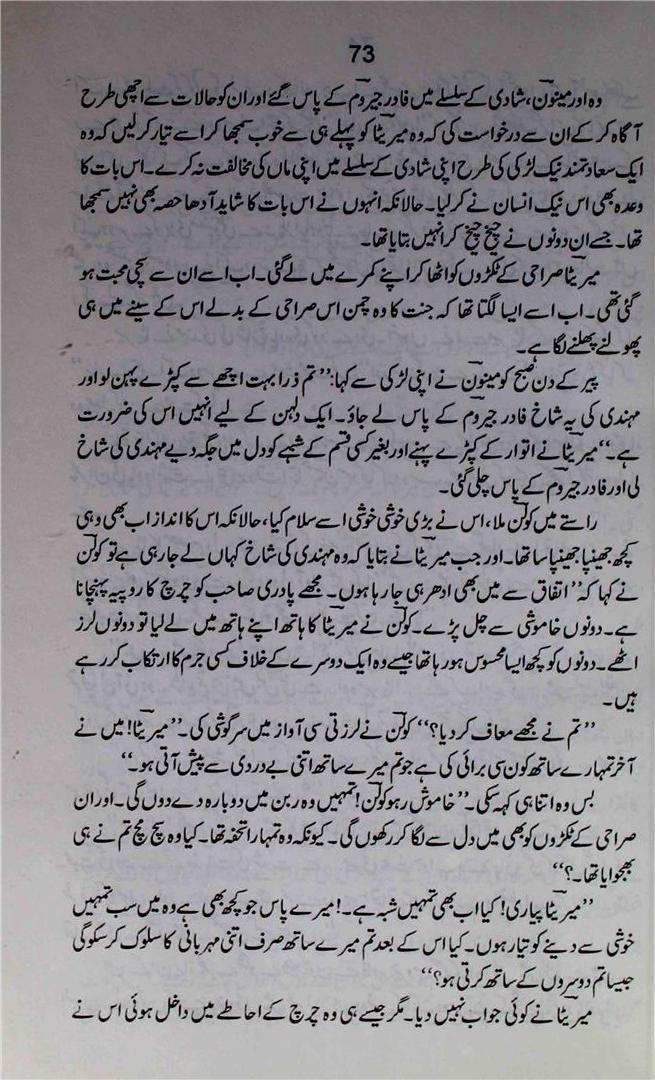 73
وہ اور مینون، شادی کے سلسلے میں فادر جیروم کے پاس گئے اور ان کو حالات سے اچھی طرح
آگاہ کر کے ان سے درخواست کی کہ وہ میریٹا کو پہلے ہی سے خوب سمجھا کر اسے تیار کر لیں کہ وہ
ایک سعادتمند نیک لڑکی کی طرح اپنی شادی کے سلسلے میں اپنی ماں کی مخالفت نہ کرے۔ اس بات کا
وعدہ بھی اس نیک انسان نے کر لیا۔ حالانکہ انہوں نے اس بات کا شاید آدھا حصہ بھی نہیں سمجھا
تھا۔ جسے ان دونوں نے چیخ چیخ کر انہیں بتایا تھا۔
میریٹا صراحی کے ٹکڑوں کو اٹھا کر اپنے کمرے میں لے گئی۔ اب اسے ان سے سچی محبت ہو
گئی تھی۔ اب اسے ایسا لگتا تھا کہ جنت کا وہ چمن اس صراحی کے بدلے اس کے سینے میں ہی
پھولنے پھلنے لگا ہے۔
پیر کے دن صبح کو مینون نے اپنی لڑکی سے کہا: ”تم ذرا بہت اچھے سے کپڑے پہن لو اور
مہندی کی یہ شاخ فادر جیروم کے پاس لے جاؤ۔ ایک دلہن کے لیے انہیں اس کی ضرورت
ہے۔“ میریٹا نے اتوار کے کپڑے پہنے اور بغیر کسی قسم کے شبہے کو دل میں جگہ دیے مہندی کی شاخ
لی اور فادر جیروم کے پاس چلی گئی۔
راستے میں کولن ملا، اس نے بڑی خوشی خوشی اسے سلام کیا، حالانکہ اس کا انداز اب بھی وہی
کچھ جھینپا جھینپا سا تھا۔ اور جب میریٹا نے بتایا کہ وہ مہندی کی شاخ کہاں لے جا رہی ہے تو کولن
نے کہا کہ ”اتفاق سے میں بھی ادھر ہی جا رہا ہوں۔ مجھے پادری صاحب کو چرچ کا روپیہ پہنچانا
ہے۔ دونوں خاموشی سے چل پڑے۔ کولن نے میریٹا کا ہاتھ اپنے ہاتھ میں لے لیا تو دونوں لرز
اٹھے۔ دونوں کو کچھ ایسا محسوس ہو رہا تھا جیسے وہ ایک دوسرے کے خلاف کسی جرم کا ارتکاب کر رہے
ہیں۔
”تم نے مجھے معاف کر دیا؟“ کولن نے لرزتی سی آواز میں سرگوشی کی۔ ”میریٹا! میں نے
آخر تمہارے ساتھ کون سی برائی کی ہے جو تم میرے ساتھ اتنی بے دردی سے پیش آتی ہو۔“
بس وہ اتنا ہی کہہ سکی۔ ”خاموش رہو کولن! تمہیں وہ ربن میں دوبارہ دے دوں گی۔ اور ان
صراحی کے ٹکڑوں کو بھی میں دل سے لگا کر رکھوں گی۔ کیونکہ وہ تمہارا تحفہ تھا۔ کیا وہ سچ مچ تم نے ہی
بھجوایا تھا۔؟“
”میریٹا پیاری! کیا اب بھی تمہیں شبہ ہے۔! میرے پاس جو کچھ بھی ہے وہ میں سب تمہیں
خوشی سے دینے کو تیار ہوں۔ کیا اس کے بعد تم میرے ساتھ صرف اتنی مہربانی کا سلوک کر سکو گی
جیسا تم دوسروں کے ساتھ کرتی ہو؟“
میریٹا نے کوئی جواب نہیں دیا۔ مگر جیسے ہی وہ چرچ کے احاطے میں داخل ہوئی اس نے